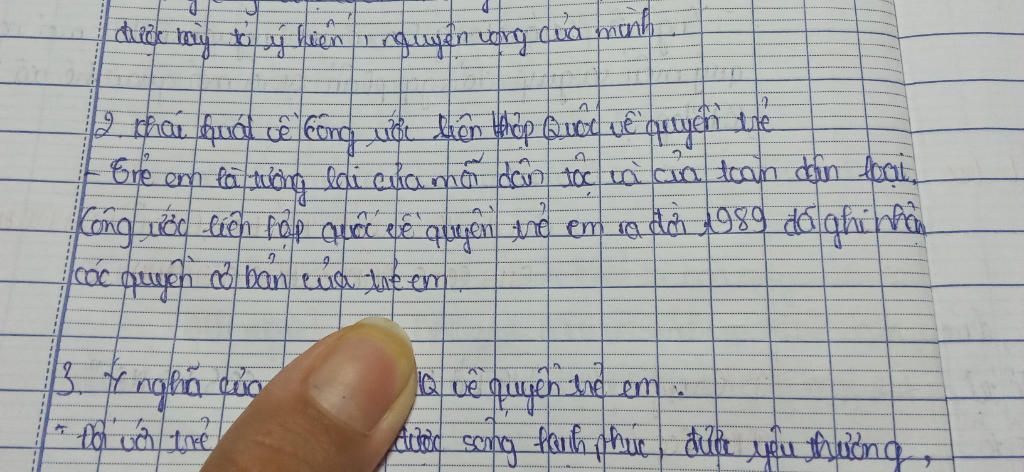 được bày tỏ ý kiến, nguyện vọng của mình
2. Khái quát về Công ước Liên hợp Quốc về quyền trẻ
- Trẻ em là tương lai của mỗi dân tộc và của toàn dân loại.
Công ước liên hợp quốc về quyền trẻ em ra đời 1989 đã ghi nhận
các quyền cơ bản của trẻ em.
3. Ý nghĩa của Q về quyền trẻ em.
- Đối với trẻ được sống hạnh phúc, được yêu thương,